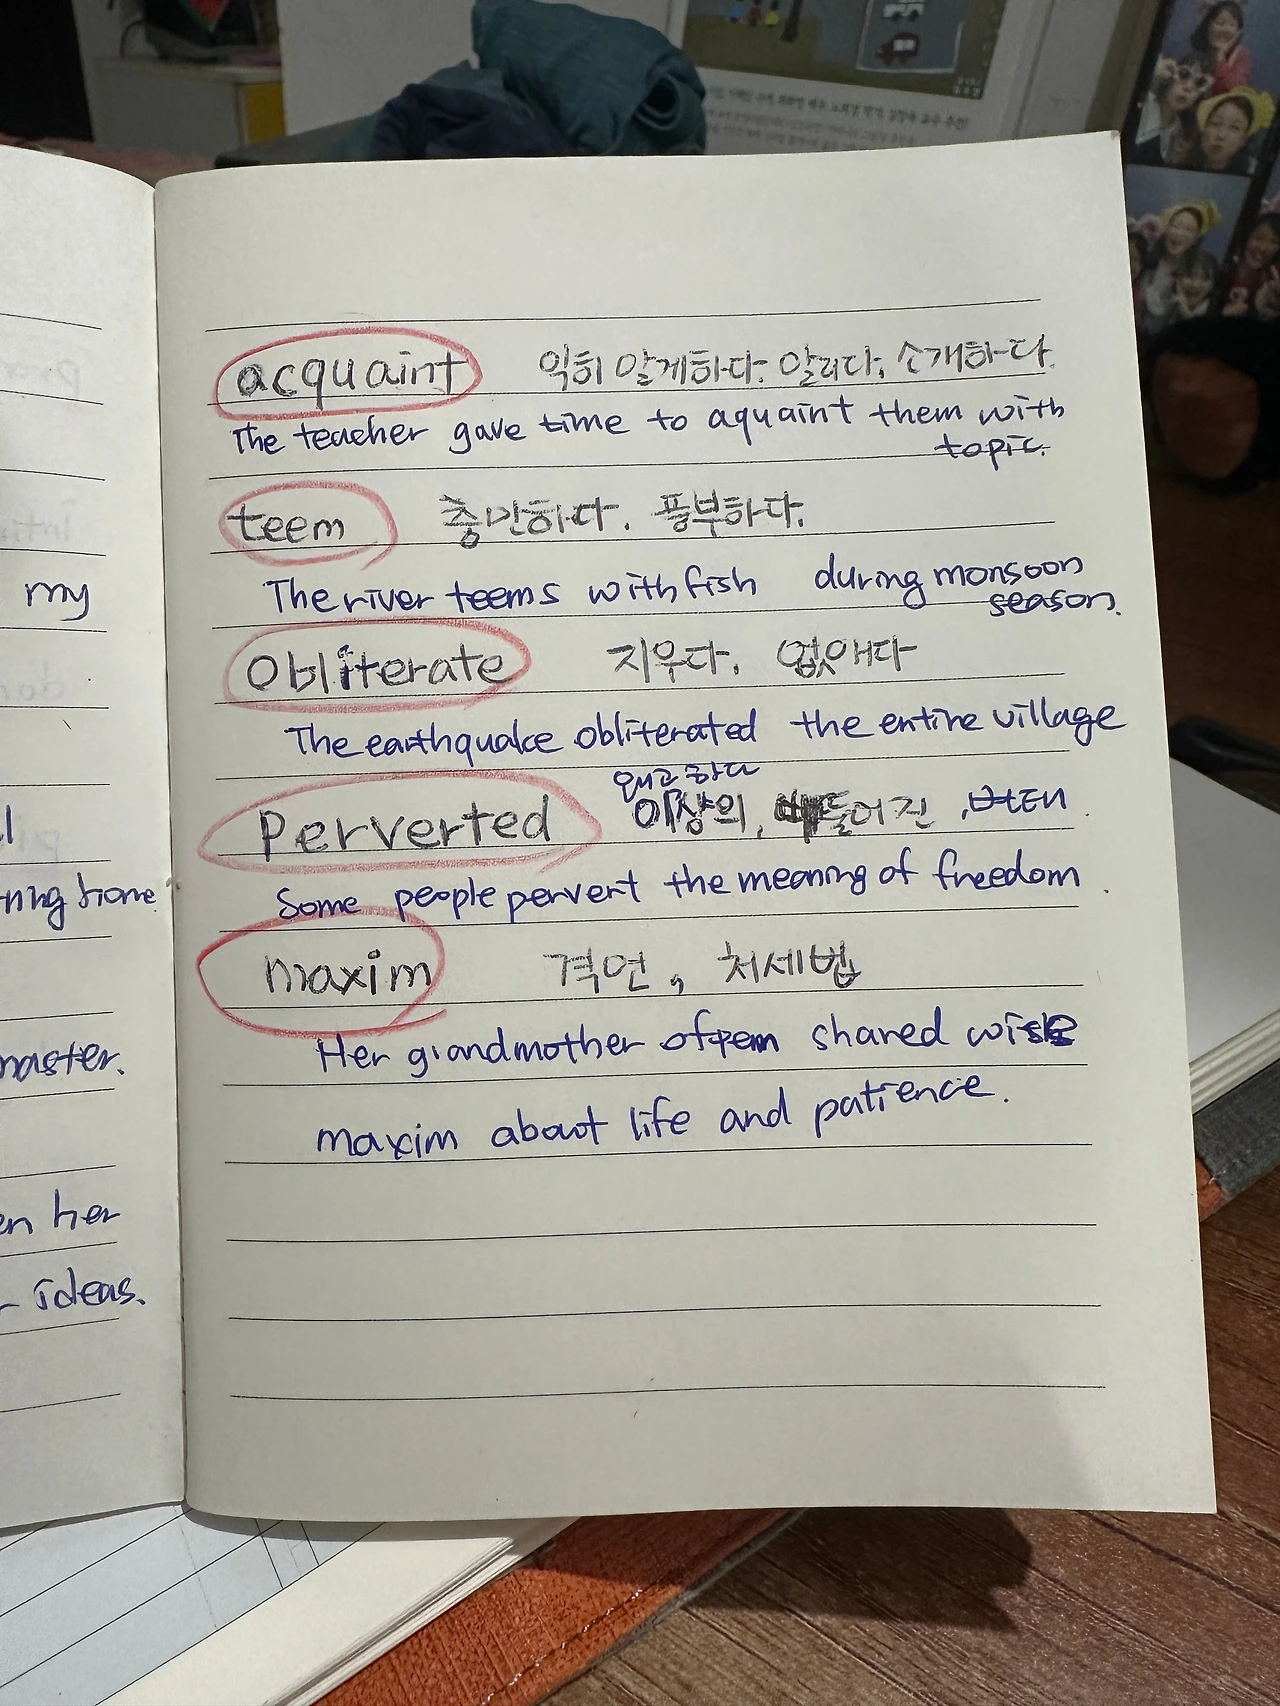 my
ning home
master.
en her
ideas.
acquaint 익히 알게하다. 알리다, 소개하다.
The teacher gave time to aquaint them with
topic.
teem 충만하다. 풍부하다.
The river teems with fish during monsoon
season.
Obliterate 지우다. 없애다
The earthquake obliterated the entire village
왜곡하다
Perverted 이상의, 뒤틀어진, 변태
Some people pervert the meaning of freedom.
maxim 격언, 처세법
Her grandmother often shared wise
maxim about life and patience.